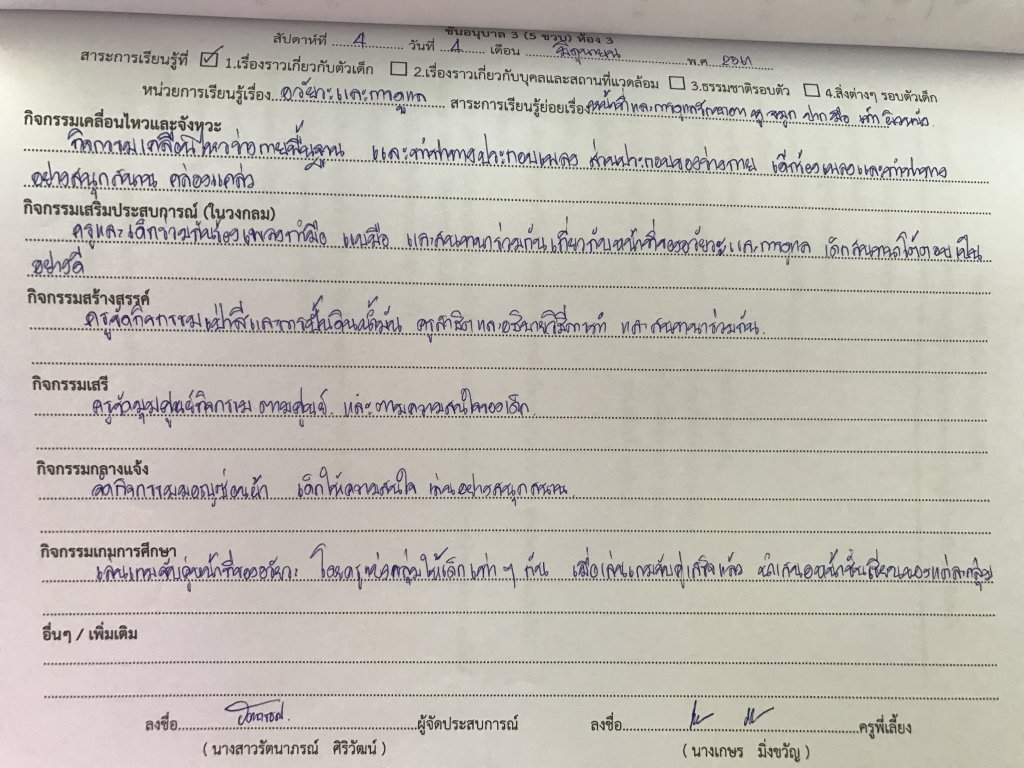 ชั้นอนุบาล 3 (5 ขวบ) ห้อง 3
สัปดาห์ที่ 4 วันที่ 4 เดือน มิถุนายน พ.ศ. 2561
สาระการเรียนรู้ที่ ☑ 1.เรื่องราวเกี่ยวกับตัวเด็ก ☐ 2.เรื่องราวเกี่ยวกับบุคลและสถานที่แวดล้อม ☐ 3.ธรรมชาติรอบตัว ☐ 4.สิ่งต่างๆ รอบตัวเด็ก
หน่วยการเรียนรู้เรื่อง อวัยวะและการดูแล สาระการเรียนรู้ย่อยเรื่อง หน้าที่และการดูแลรักษาตา หู จมูก ปาก มือ เท้า ผิวหนัง
กิจกรรมเคลื่อนไหวและจังหวะ
กิจกรรมเคลื่อนไหวร่างกายพื้นฐาน และทำท่าทางประกอบเพลง ส่วนประกอบของร่างกาย เด็กร้องเพลงและทำท่าทาง
อย่างสนุกสนาน คล่องแคล่ว
กิจกรรมเสริมประสบการณ์ (ในวงกลม)
ครูและเด็กร่วมกันร้องเพลงกำมือ แบมือ และสนทนาร่วมกันเกี่ยวกับหน้าที่ของอวัยวะและการดูแล เด็กสนทนาโต้ตอบเป็น
อย่างดี
กิจกรรมสร้างสรรค์
ครูจัดกิจกรรมเป่าสีและการปั้นดินน้ำมัน ครูสาธิตและอธิบายวิธีการทำ และสนทนาร่วมกัน.
กิจกรรมเสรี
ครูจัดมุมศูนย์กิจกรรม ตามศูนย์ และตามความสนใจของเด็ก.
กิจกรรมกลางแจ้ง
จัดกิจกรรมมอญซ่อนผ้า เด็กให้ความสนใจ เล่นอย่างสนุกสนาน
กิจกรรมเกมการศึกษา
เล่นเกมจับคู่หน้าที่ของอวัยวะ โดยครูแบ่งกลุ่มให้เด็กเท่าๆ กัน เมื่อเล่นเกมจับคู่เสร็จแล้ว นำเสนอหน้าชั้นเรียนของแต่ละกลุ่ม
อื่นๆ / เพิ่มเติม
ลงชื่อ ผู้จัดประสบการณ์ ลงชื่อ ครูพี่เลี้ยง
( นางสาวรัตนาภรณ์ ศิริวัฒน์ ) ( นางเกษร มิ่งขวัญ )